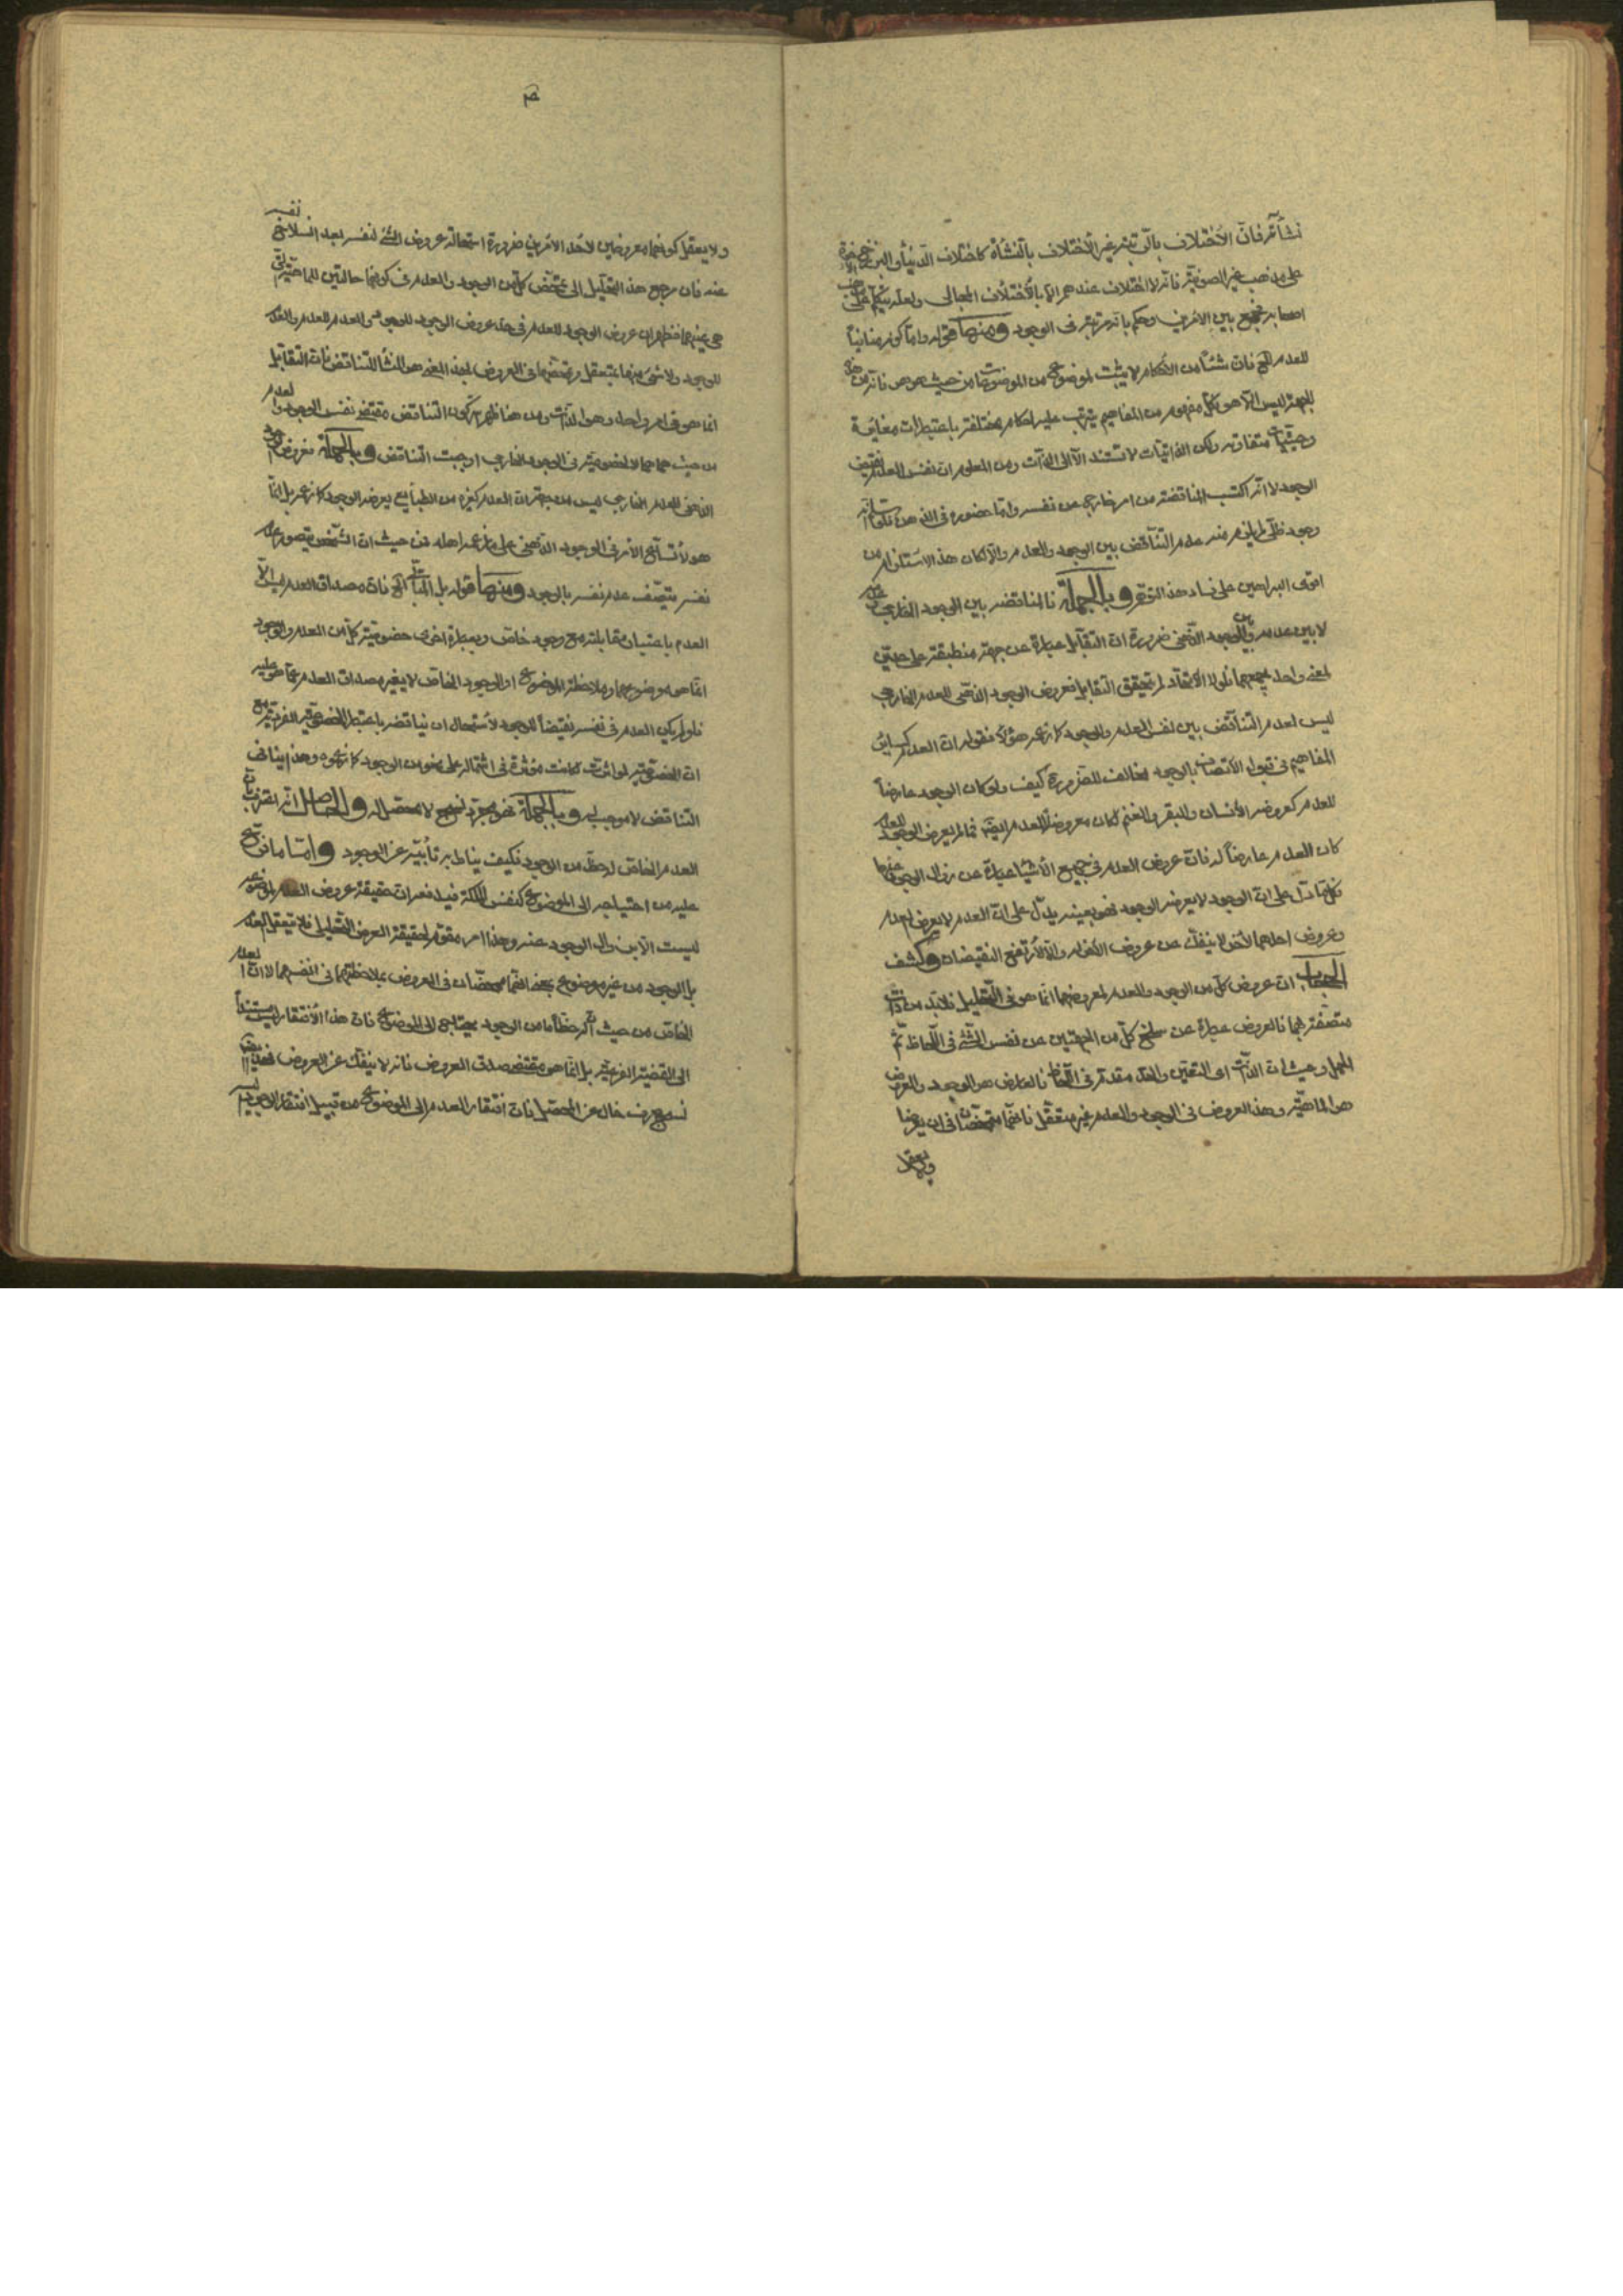 نشأته فانّ الاختلاف بالرتبة غير الاختلاف بالنشأة كاختلاف الدنيا والبرزخ
على مذهب غير الصوفية فانه لا اختلاف عندهم الا باختلاف المجالى ولعله يتكلم على
اصحابه فجمع بين الامرين وحكم بانه مرتبة فى الوجود ومنها قوله واما كونه منافياً
للعدم الخ فان شيئاً من الاحكام لا يثبت لموضوع من الموضوعات من حيث هو هو فانه من هذه
الجهة ليس الا هو كل مفهوم من المفاهيم يترتب عليه احكام مختلفة باعتبارات مغايرة
وحيثيات متفاوته ولكن الذاتيات لا تستند الا الى الذات ومن المعلوم ان نفس العدم نقيض
الوجود لا انه اكتسب المناقضة من امر خارج عن نفسه واما حضوره فى الذهن
وجود ظلّى لم يلزم منه عدم التناقض بين الوجود والعدم والا لكان هذا الاستلزام من
اقوى البراهين على فساد هذا وبالجملة فالمناقضة بين الوجود الخارجى
لا بين عدمه وبين الوجود الذهنى ضرورة ان التقابل عبارة عن جهة منطبقة على جهتين
لمعنى واحد يجمعهما فلولا الاتحاد لم يتحقق التقابل فعروض الوجود الذهنى للعدم الخارجى
ليس لعدم التناقض بين نفس العدم والوجود كما زعم هؤلاء فقوله ان العدم كساير
المفاهيم فى قبول الاتصاف بالوجود مخالف للضرورة كيف ولو كان الوجود عارضاً
للعدم كعروضه للانسان والبقر والغنم لكان معروضاً للعدم ايضا فما لم يعرض الوجود للعدم
كان العدم عارضاً له فان عروض العدم فى جميع الاشياء عبارة عن زوال الوجود عنها
فكلما دل على ان الوجود لا يعرضه الوجود فهو بعينه يدل على ان العدم لا يعرض لعدم
وعروض احدهما لا ينفك عن عروض الاخر والا لارتفع النقيضان وكشف
الحجاب ان عروض كل من الوجود والعدم لمعروضهما انما هو فى التحليل فلا بد من ذات
متصفة بهما فالعروض عبارة عن سلخ كل من الجهتين عن نفس الشئ فى اللحاظ ثم
الحمل وحيث ان الذات اى التعين والحد مقدمة فى اللحاظ فالعارض هو الوجود والمعروض
هو الماهية وهذا العروض فى الوجود والعدم غير متعقل فانهما متمحضان فى ان يعرضا
ولا يعقل
ولا يعقل كونهما معروضين لاحد الامرين ضرورة استحالة عروض الشئ لنفسه بعد انسلاخ نفسه
عنه فان مرجع هذا التحليل الى تمحض كل من الوجود والعدم فى كونهما حالتين للماهية التى
هى غيرهما فظهر ان عروض الوجود للعدم فى حد عروض الوجود للوجود والعدم للعدم والعدم
للوجود ولا شئ منها بمتعقل وتمحضهما فى العروض بهذا المعنى هو المنشأ للتناقض فان التقابل
انما هو فى امر واحد وهو الذات ومن هنا ظهر كون التناقض مقتضى نفس الوجود والعدم
من حيث هما هما لا لخصوصية فى الوجود الخارجى اوجبت التناقض وبالجملة فعروض الوجود
الذهنى للعدم الخارجى ليس من جهة ان العدم كغيره من الطبايع يعرضه الوجود كما زعم بل انما
هو لاتساع الامر فى الوجود الذهنى على ما زعمه اهله فمن حيث ان الشخص يتصور عدم
نفسه يتصف عدم نفسه بالوجود ومنها قوله بل الخ فان مصداق العدم ليس الا
العدم باعتبار مقابلته مع وجود خاص وبعبارة اخرى خصوصية كل من العدم والوجود
انما هى بموضوعهما وملاحظة الموضوع او الوجود الخاص لا يغير مصداق العدم عما هو عليه
فلو لم يكن العدم فى نفسه نقيضاً للوجود لاستحال ان يناقضه باعتبار الخصوصية الفردية مع
ان الخصوصية لو اثرت لكانت مؤثرة فى اشتماله على نحو من الوجود كما زعموه وهذا ينافى
التناقض لا موجب له وبالجملة فهو مجرد تسجيع لا محصل له والحاصل انه اعترف بان
العدم الخاص له حظ من الوجود فكيف يناط به تأبيه عن الوجود واما ما فرع
عليه من احتياجه الى الموضوع كنفس الملكة فيدفعه ان حقيقة عروض العدم لموضوعه
ليست الا زوال الوجود عنه وهذا امر مقوم لحقيقة العرض التحليلى فلا يتعقل العدم
بل الوجود من غير موضوع بمعنى انهما متمحضان فى العروض بملاحظتهما فى انفسهما لا ان العدم
الخاص من حيث ان له حظاً ما من الوجود يحتاج الى الموضوع فان هذا الافتقار ليس مستنداً
الى القضية الفرعية بل انما هو مقتضى صدق العروض فانه لا ينفك عن العروض
تسجيع صرف خال عن المحصل فان افتقار العدم الى الموضوع من قبيل افتقار الوجود اليه